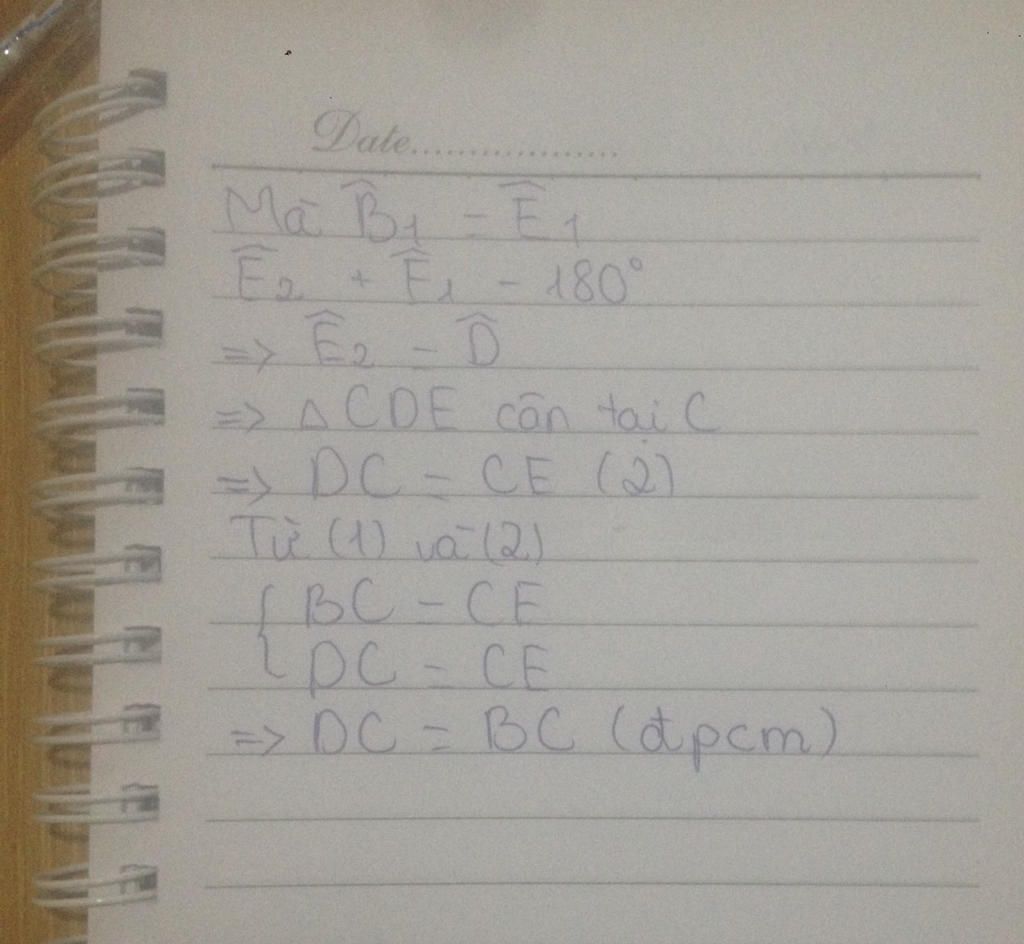 Date..................
Mà B̂1 = Ê1
Ê2 + Ê1 = 180°
=> Ê2 = D̂
=> △CDE cân tại C
=> DC = CE (2)
Từ (1) và (2)
{ BC = CE
DC = CE
=> DC = BC (đpcm)